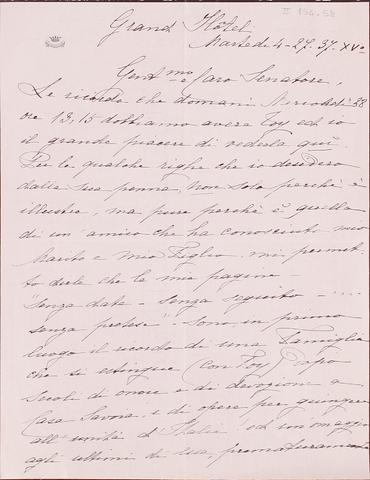 II 196.58
Grand Hotel
Martedi 4-27-37-XVº
Gentmo e Caro Senatore,
Le ricordo che domani Mercoledi 28
ore 13,15 dobbiamo avere Foy ed io
il grande piacere di vederla quì.
Per le qualche righe che io desidero
dalla sua penna, non solo perchè è
illustre, ma pure perchè è quella
di un'amico che ha conosciuto mio
Marito e mio Figlio, mi permet-
to dirle che le mie pagine -
"Senza date - Senza seguito - ...
senza pretese" - Sono, in primo
luogo il ricordo di una Famiglia
che si estingue (con Foy) dopo
Secoli di onore e di devozione a
Casa Savoia, e di opere per giungere
all'unità d'Italia: ed un'omaggio
agli ultimi di essa, prematuramente